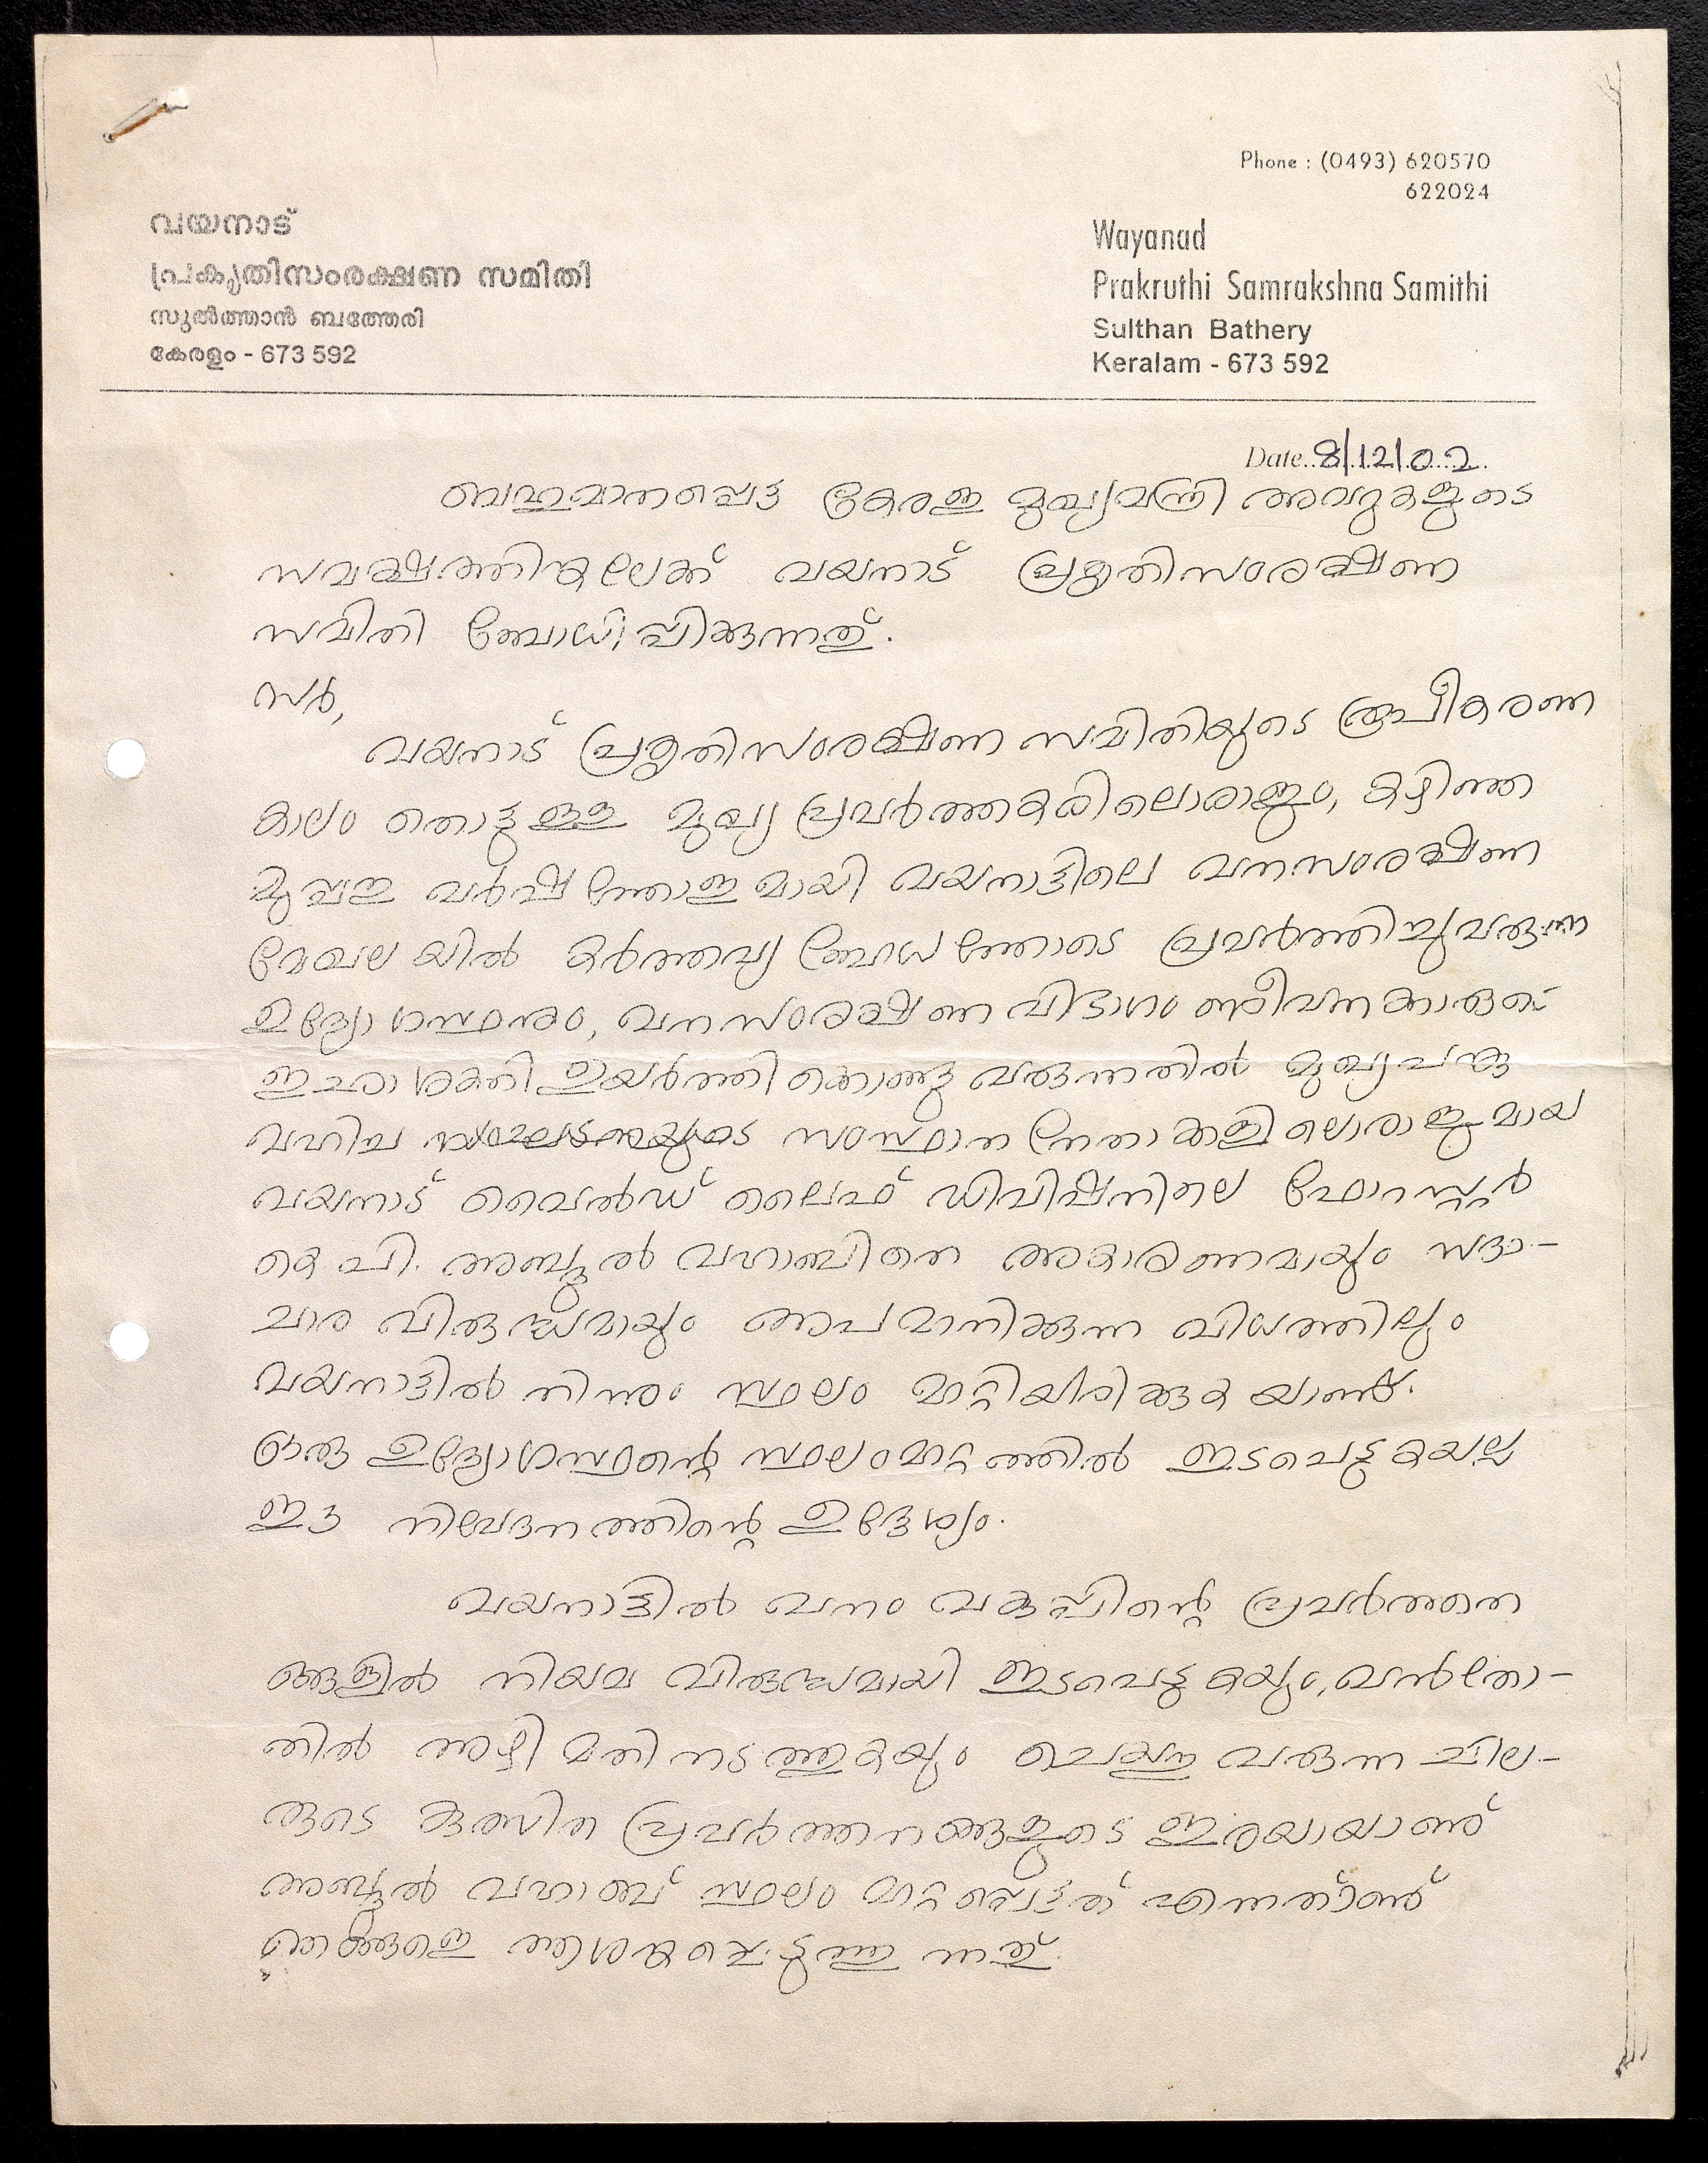 Phone : (0493) 620570
622024
വയനാട്
പ്രകൃതിസംരക്ഷണ സമിതി
സുൽത്താൻ ബത്തേരി
കേരളം - 673 592
Wayanad
Prakruthi Samrakshna Samithi
Sulthan Bathery
Keralam - 673 592
Date 8/12/02
ബഹുമാനപ്പെട്ട കേരള മുഖ്യമന്ത്രി അവറുകളുടെ
സമക്ഷത്തിങ്കലേക്ക് വയനാട് പ്രകൃതിസംരക്ഷണ
സമിതി ബോധിപ്പിക്കുന്നത്.
സർ,
വയനാട് പ്രകൃതിസംരക്ഷണ സമിതിയുടെ രൂപീകരണ
കാലം തൊട്ടുള്ള മുഖ്യ പ്രവർത്തകരിലൊരാളും, കഴിഞ്ഞ
മുപ്പതു വർഷത്തോളമായി വയനാട്ടിലെ വനസംരക്ഷണ
മേഖലയിൽ കർത്തവ്യ ബോധത്തോടെ പ്രവർത്തിച്ചുവരുന്ന
ഉദ്യോഗസ്ഥനും, വനസംരക്ഷണ വിഭാഗം ജീവനക്കാരുടെ
ഇച്ഛാശക്തി ഉയർത്തി കൊണ്ടു വരുന്നതിൽ മുഖ്യപങ്കു
വഹിച്ച സംഘടനയുടെ സംസ്ഥാന നേതാക്കളിലൊരാളുമായ
വയനാട് വൈൽഡ് ലൈഫ് ഡിവിഷനിലെ ഫോറസ്റ്റർ
കെ.പി. അബ്ദുൽ വഹാബിനെ അകാരണമായും സദാ-
ചാര വിരുദ്ധമായും അപമാനിക്കുന്ന വിധത്തിലും
വയനാട്ടിൽ നിന്നും സ്ഥലം മാറ്റിയിരിക്കുകയാണ്.
ഒരു ഉദ്യോഗസ്ഥന്റെ സ്ഥലംമാറ്റത്തിൽ ഇടപെടുകയല്ല
ഈ നിവേദനത്തിന്റെ ഉദ്ദേശ്യം.
വയനാട്ടിൽ വനം വകുപ്പിന്റെ പ്രവർത്തന
ങ്ങളിൽ നിയമ വിരുദ്ധമായി ഇടപെടുകയും, വൻതോ-
തിൽ അഴിമതി നടത്തുകയും ചെയ്തു വരുന്ന ചില-
രുടെ കുത്സിത പ്രവർത്തനങ്ങളുടെ ഇരയായാണ്
അബ്ദുൽ വഹാബ് സ്ഥലം മാറ്റപ്പെട്ടത് എന്നതാണ്
ഞങ്ങളെ ആശങ്കപ്പെടുത്തുന്നത്.